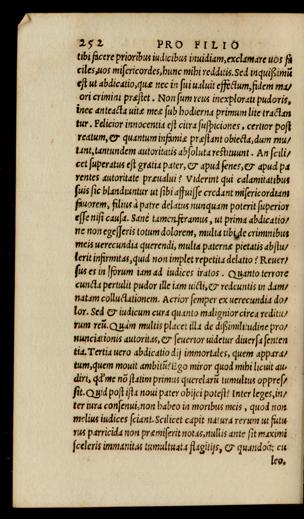 252 PRO FILIO
tibi facere prioribus iudicibus inuidiam, exclamare uos fa
ciles, uos misericordes, hunc mihi reddidis. Sed inquissimũ
est ut abdicatio, quæ nec in sui ualuit effectum, fidem ma/
iori crimini præstet. Non sum reus inexplorati pudoris,
nec anteacta uitæ meæ sub hodierna primum lite tractan
tur. Felicior innocentia est citra suspiciones, certior post
reatum, & quantum infamiæ præstant obiecta, dum mu/
tant, tantundem autoritatis absoluta restituunt. An scili/
cet superatus est gratia pater, & apud senes, & apud pa
rentes autoritate præualui? Viderint qui calamitatibus
suis sic blandiuntur ut sibi assuisse credant misericordiam
fauorem, filius à patre delatus nunquam poterit superior
esse nisi causa. Sanè tamen feramus, ut prima abdicatio/
ne non egesseris totum dolorem, multa tibi de criminibus
meis uerecundia querendi, multa paternæ pietatis abstu/
lerit infirmitas, quid non implet repetita delatio? Reuer/
sus es in forum iam ad iudices iratos. Quanto terrore
cuncta pertulit pudor ille iam uicti, & redeuntis in dam/
natam colluctationem. Acrior semper ex uerecundia do/
lor. Sed & iudicum cura quanto malignior circa reditu/
rum reũ. Quàm multis placet illa de dissimilitudine pro/
nunciationis autoritas, & seuerior uidetur diuersa senten
tia. Tertia uero abdicatio dij immortales, quem appara/
tum, quem mouit ambitũ? Ego miror quod mihi licuit au/
diri, qđ me nõ statim primus querelarũ tumultus oppres/
sit. Quid post ista noui pater obijci potest? Inter leges, in/
ter iura consenui, non habeo in moribus meis, quod non
melius iudices sciant. Scilicet capit natura rerum ut futu
rus parricida non præmiserit notas, nullis ante sit maximi
sceleris immanitas tumultuata flagitijs, & quandoq; cu
leo,